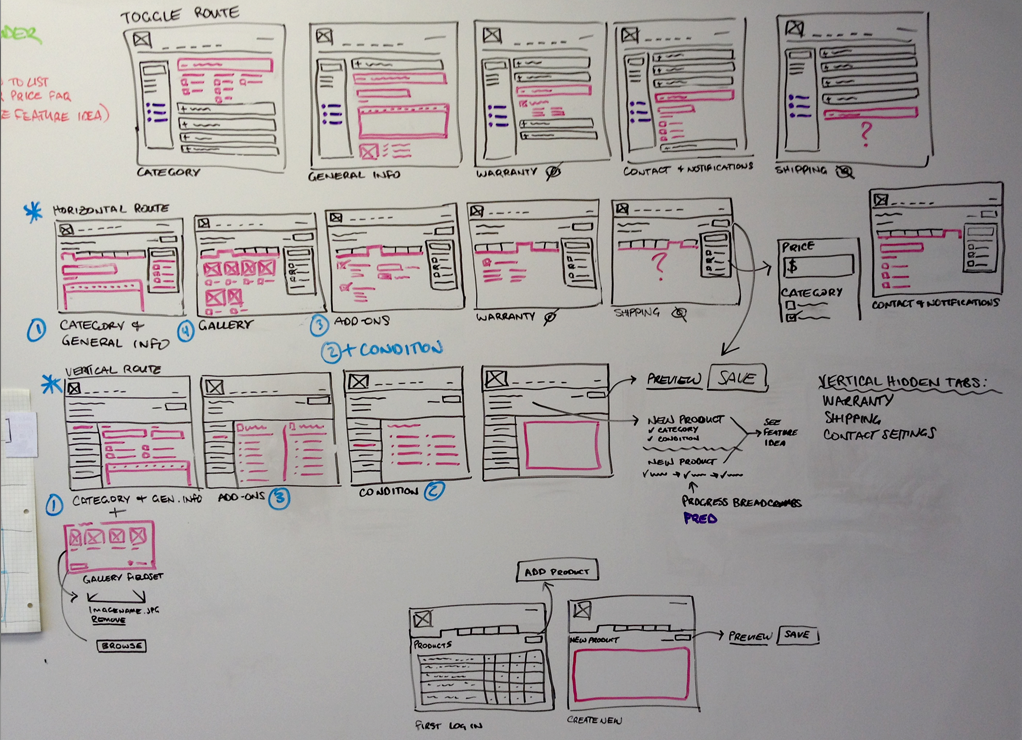 TOGGLE ROUTE
DER
TO LIST
PRICE FAR
E FEATURE IDEA)
CATEGORY
GENERAL INFO
WARRANTY
CONTACT & NOTIFICATIONS
SHIPPING
?
* HORIZONTAL ROUTE
?
PRICE
$
CATEGORY
① CATEGORY &
GENERAL INFO
④ GALLERY
③ ADD-ONS
② + CONDITION
WARRANTY
SHIPPING
CONTACT & NOTIFICATIONS
* VERTICAL ROUTE
PREVIEW SAVE
NEW PRODUCT
✓ CATEGORY
✓ CONDITION
NEW PRODUCT
SEE
FEATURE
IDEA
PROGRESS BREADCRUMBS
PRED
VERTICAL HIDDEN TABS:
WARRANTY
SHIPPING
CONTACT SETTINGS
① CATEGORY & GEN. INFO
+
ADD-ONS ③
CONDITION ②
GALLERY FIELDSET
IMAGENAME.JPG
REMOVE
BROWSE
ADD PRODUCT
PRODUCTS
FIRST LOG IN
NEW PRODUCT
PREVIEW SAVE
CREATE NEW